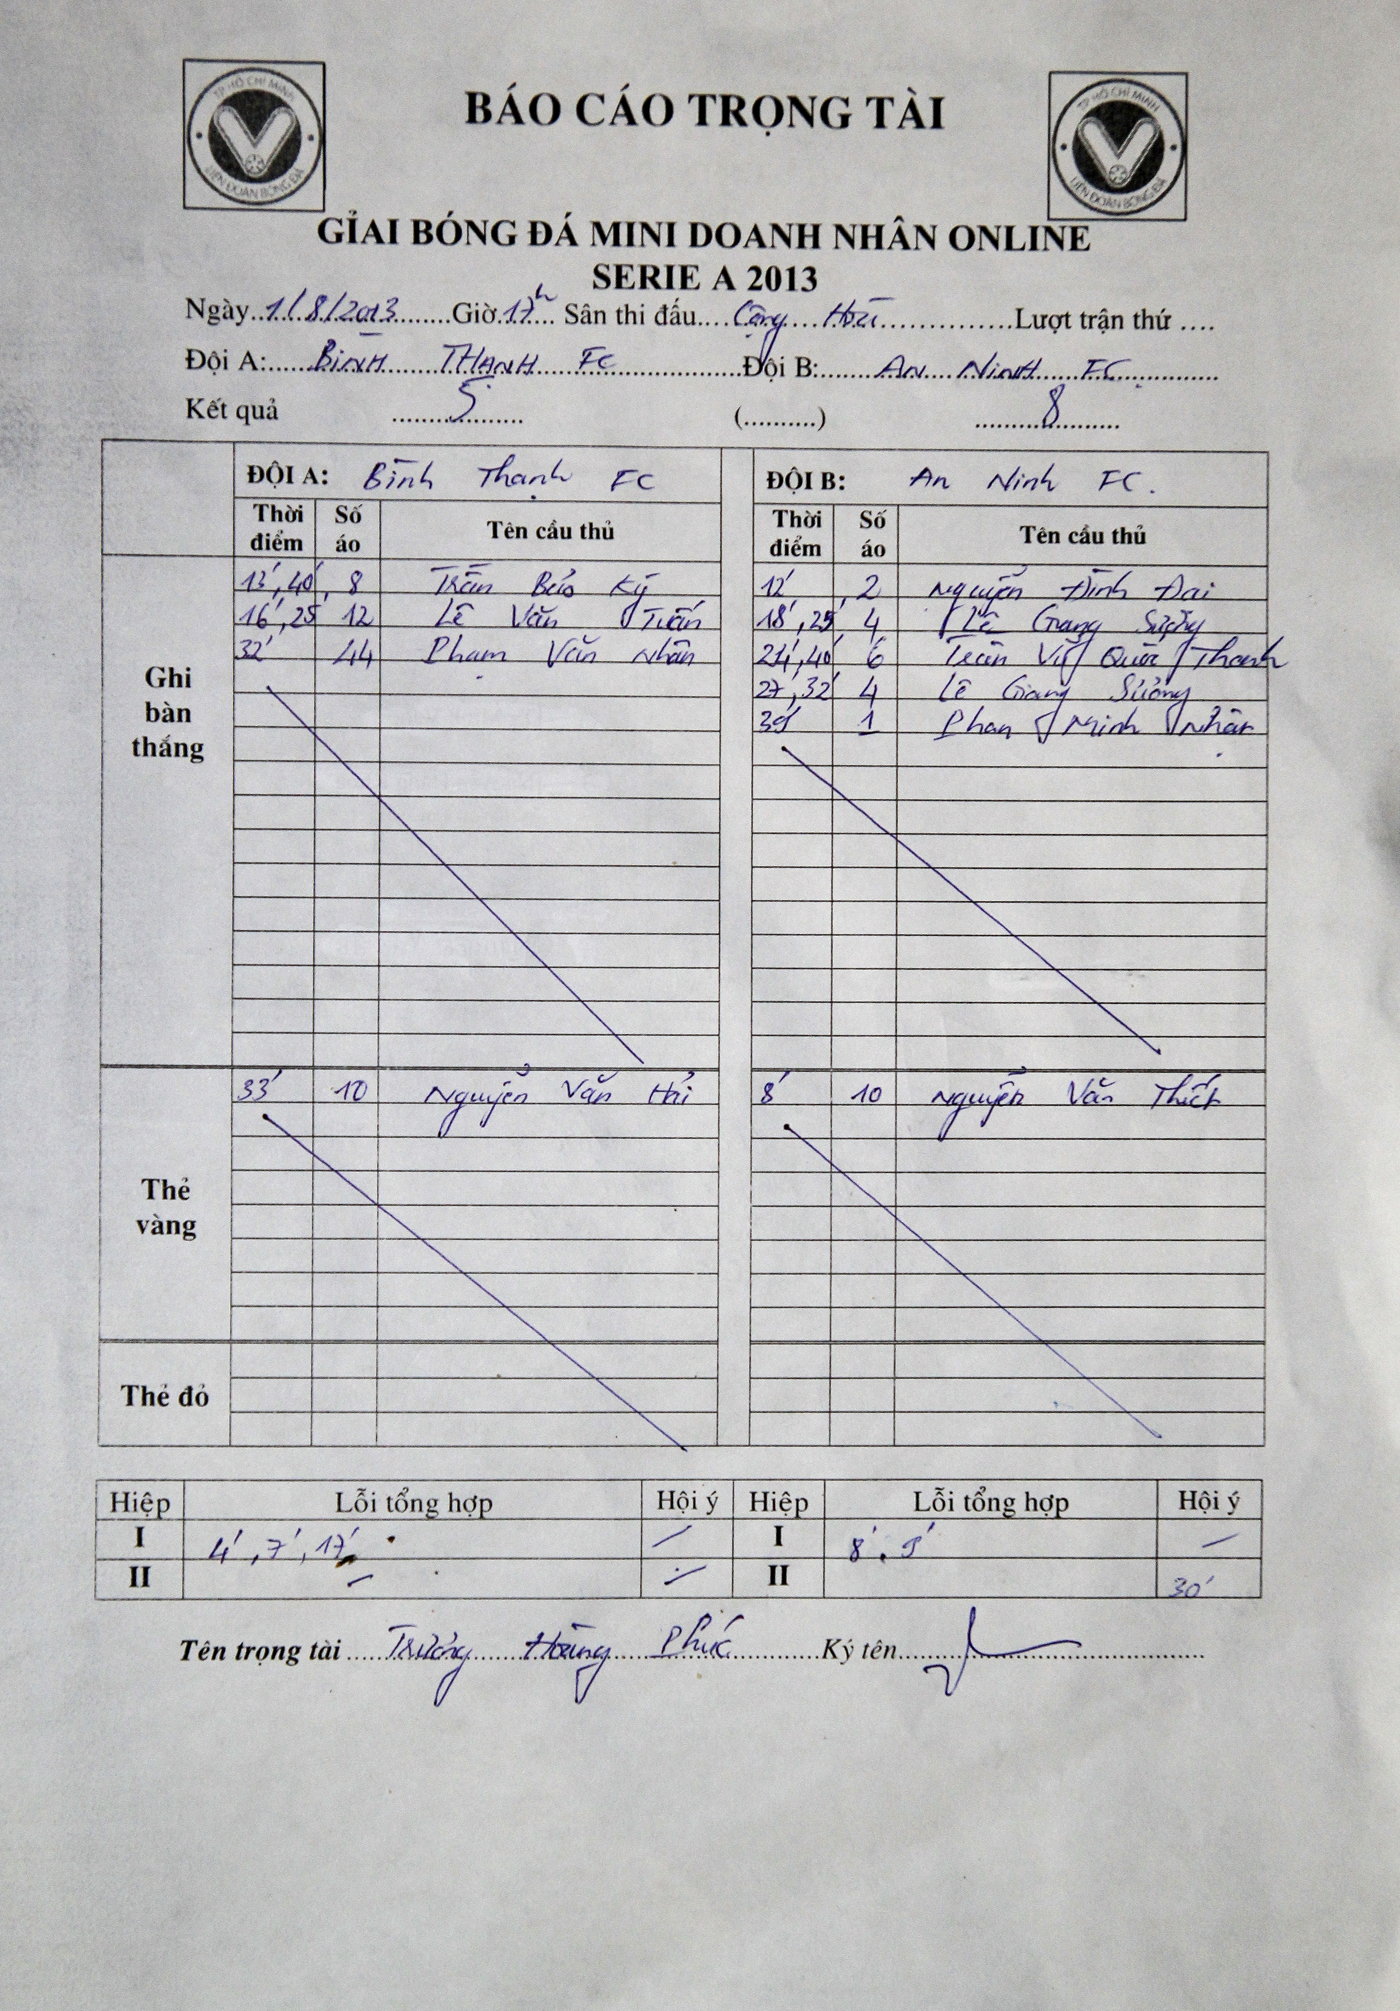 TP HỒ CHÍ MINH
LIÊN ĐOÀN BÓNG ĐÁ
BÁO CÁO TRỌNG TÀI
TP HỒ CHÍ MINH
LIÊN ĐOÀN BÓNG ĐÁ
GỈAI BÓNG ĐÁ MINI DOANH NHÂN ONLINE
SERIE A 2013
Ngày 1/8/2013 Giờ 17h Sân thi đấu Cộng Hòa Lượt trận thứ ....
Đội A: BÌNH THẠNH FC Đội B: AN NINH FC
Kết quả 5 (..........) 8
ĐỘI A: Bình Thạnh FC ĐỘI B: An Ninh FC.
Thời điểm Số áo Tên cầu thủ Thời điểm Số áo Tên cầu thủ
Ghi bàn thắng
13', 40' 8 Trần Bảo Kỳ 12' 2 Nguyễn Đình Đai
16', 25' 12 Lê Văn Tuấn 18', 25' 4 Lê Giang Sương
32' 44 Phạm Văn Nhân 24', 40' 6 Trần Vũ Quốc Thanh
27', 32' 4 Lê Giang Sương
39' 1 Phan Minh Nhật
Thẻ vàng
33' 10 Nguyễn Văn Hải 8' 10 Nguyễn Văn Thiết
Thẻ đỏ
Hiệp Lỗi tổng hợp Hội ý Hiệp Lỗi tổng hợp Hội ý
I 4', 7', 17' – I 8', 9' –
II – – II 30'
Tên trọng tài Trương Hoàng Phúc Ký tên